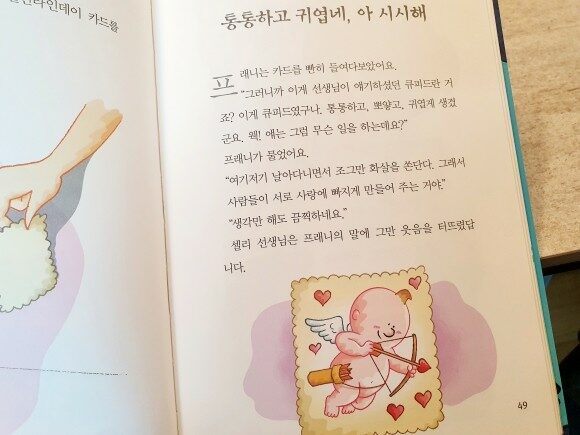 카드를
통통하고 귀엽네, 아 시시해
프래니는 카드를 빤히 들여다보았어요.
"그러니까 이게 선생님이 얘기하셨던 큐피드란 거
죠? 이게 큐피드였구나. 통통하고, 뽀얗고, 귀엽게 생겼
군요. 웩! 얘는 그럼 무슨 일을 하는데요?"
프래니가 물었어요.
"여기저기 날아다니면서 조그만 화살을 쏜단다. 그래서
사람들이 서로 사랑에 빠지게 만들어 주는 거야."
"생각만 해도 끔찍하네요."
셸리 선생님은 프래니의 말에 그만 웃음을 터뜨렸답
니다.
49